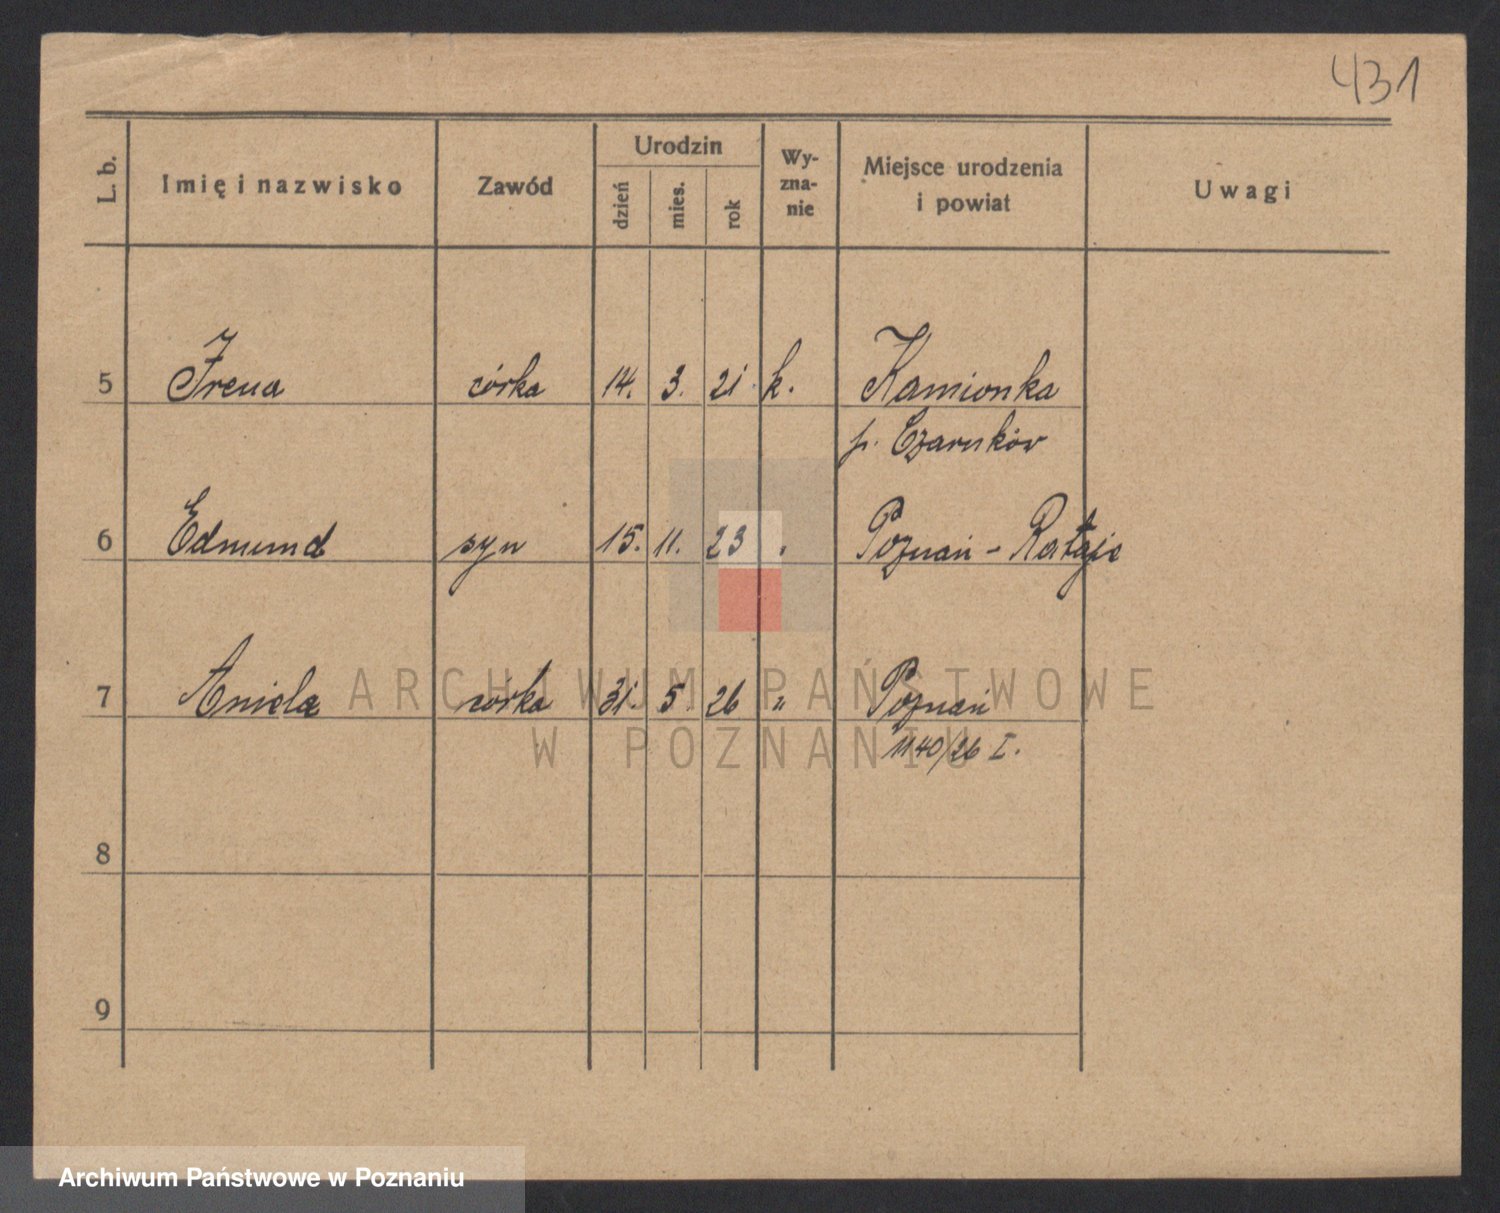 431
L. b.
Imię i nazwisko
Zawód
Urodzin
dzień
mies.
rok
Wy-
zna-
nie
Miejsce urodzenia
i powiat
Uwagi
5 Irena córka 14. 3. 21 k. Kamionka
p. Czarnków
6 Edmund syn 15. 11. 23 „ Poznań - Rataje
7 Aniela córka 31. 5. 26 „ Poznań
1140/26 I.
8
9
ARCHIWUM PAŃSTWOWE
W POZNANIU
Archiwum Państwowe w Poznaniu